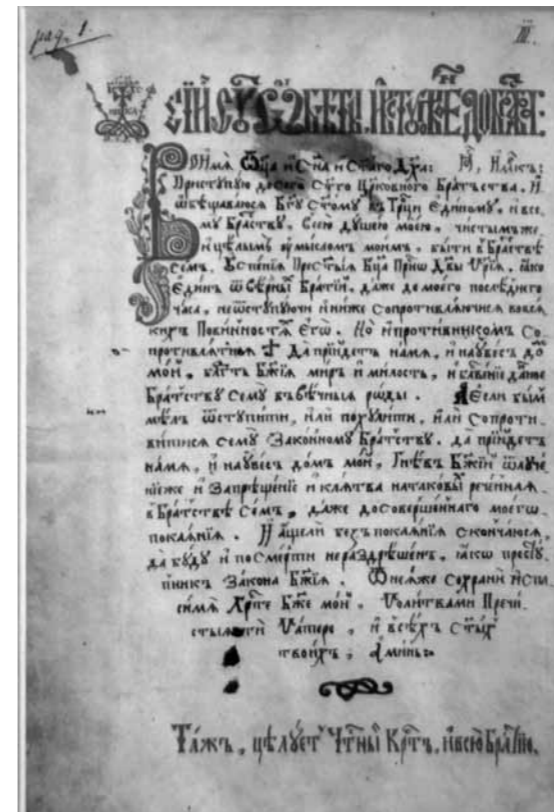 pag. 1.
III.
ОБѢТЪ
Во Имѧ Ѿца и Сн҃а и Ст҃аго Дх҃а:
Приступую до сего Ст҃го Црковного Братъства. И
ѡбѣщаваюсѧ Бг҃у Ст҃ому въ Трци Единому, и все
му Братству. Всею душею моею, чистым же
и цѣлымъ оумысломъ моимъ, быти в Братъствѣ
Семъ. Успенїѧ Прест҃ыѧ Бц҃а Дв҃ы Мр҃їѧ. ꙗко
Единъ ѿ вѣрны Братїй, даже до моего послѣднего
часа, не ѿступуючи и ниже сопротивлѧючисѧ во всѧ
кихъ Повинностѧ Егѡ. Но и противникомъ Со
противлѧтисѧ Да прїидетъ на мѧ, и на увесь до
мой, Бж҃їѧ миръ и милость, и бл҃гвенїе даное
Братству сему въ вѣчныѧ роды. А если бым
мѣлъ ѿступити, или похулити, или Сопроти
витисѧ сему Законному Братству, да прїидетъ
на мѧ, и на увесь домъ мой, Гнѣвъ Бж҃їй ѿлуче
нїе же и Запрѣщенїе и клѧтва на таковы реченнаѧ
в Братствѣ семъ, даже до совершеннаго моегѡ
покаѧнїѧ. И ащели безъ покаѧнїѧ скончаюсѧ,
да буду и по смерти нераздрѣшенъ, ꙗкѡ престу
пникъ Закона Бж҃їѧ. Ѿ неѧже сохрани и спа
си мѧ Хрте Бж҃е мой, Молитвами Пречи
стыѧ ти Матере, и всѣхъ Ст҃ыхъ
твоихъ, Аминь:
Таж, цѣлуетъ Чтный Крт҃ъ, и всю Братїю.